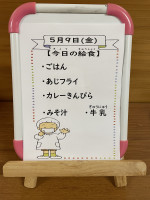 5月9日(金)
【今日の給食】
・ごはん
・あじフライ
・カレーきんぴら
・みそ汁 ・牛乳